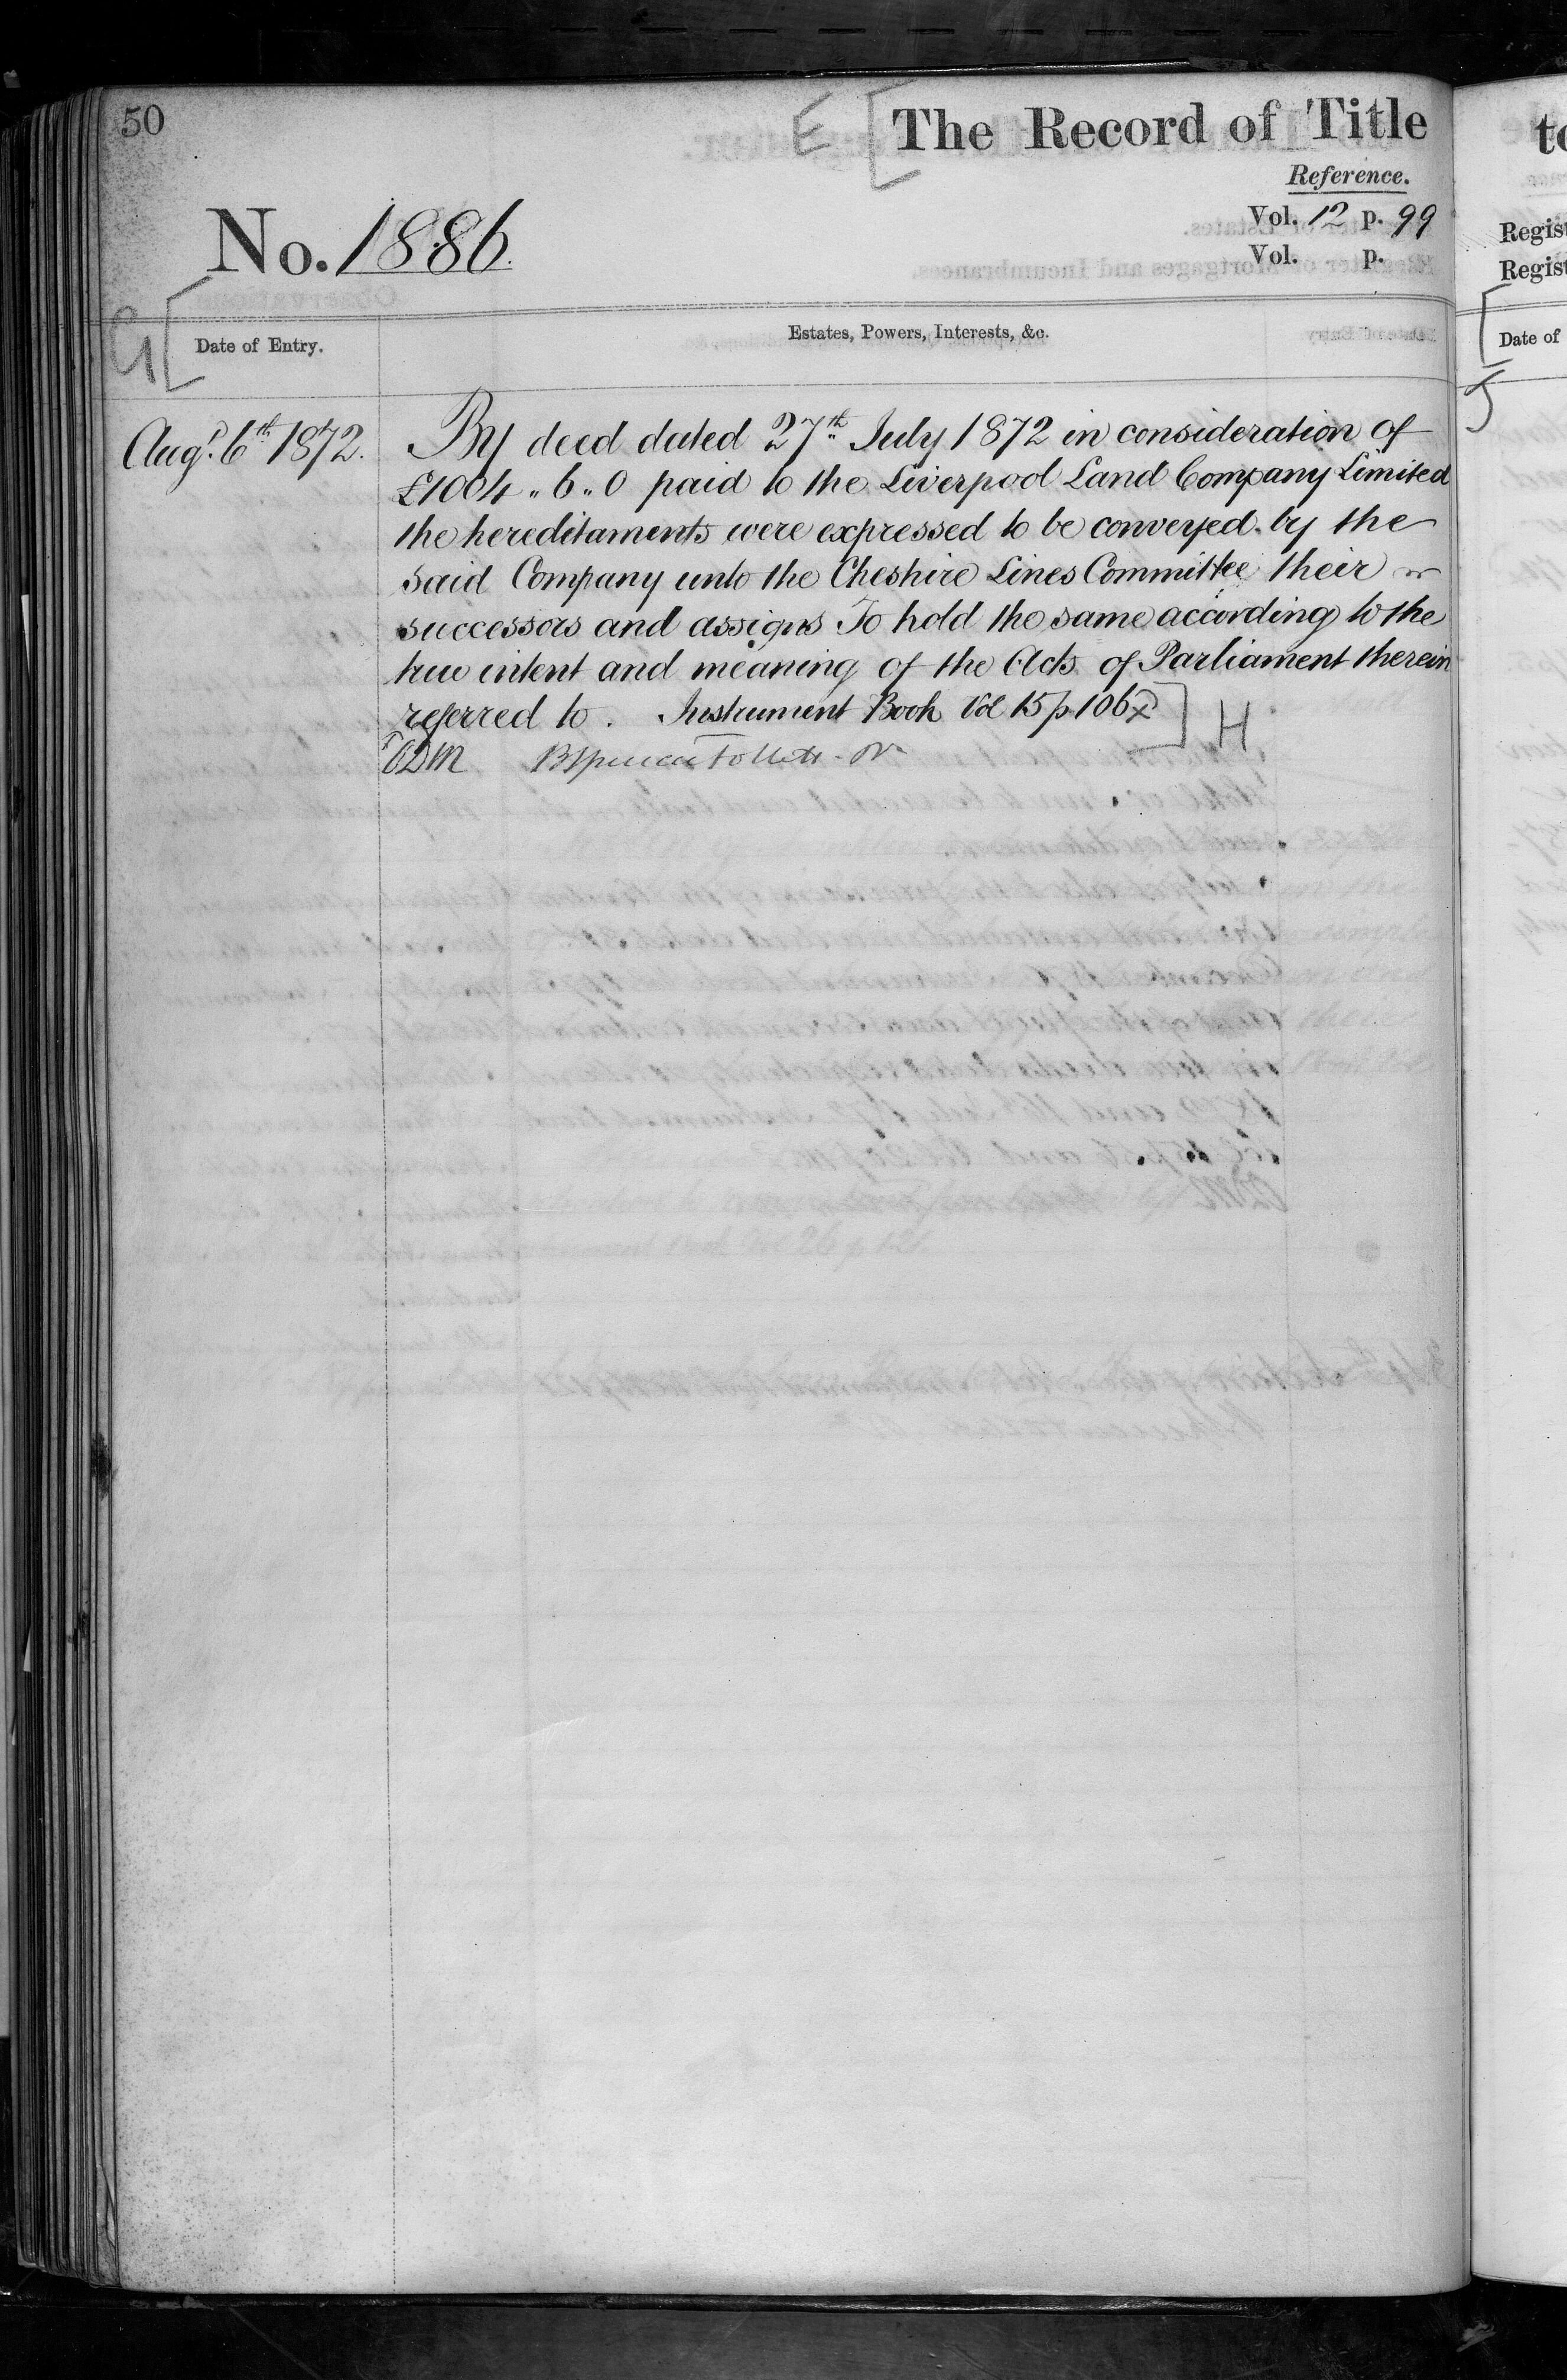 50
E [ The Record of Title
Reference.
No. 1886.
Vol. 12 p. 99
Vol. p.
G [ Date of Entry.
Estates, Powers, Interests, &c.
Augt. 6th 1872.
By deed dated 27th July 1872 in consideration of
£1004 „ 6 „ 0 paid to the Liverpool Land Company Limited
the hereditaments were expressed to be conveyed by the
said Company unto the Cheshire Lines Committee their
successors and assigns To hold the same according to the
true intent and meaning of the Acts of Parliament therein
referred to. Instrument Book Vol 15 p 106 x ] H
to
Regist
Regist
[
Date of
J